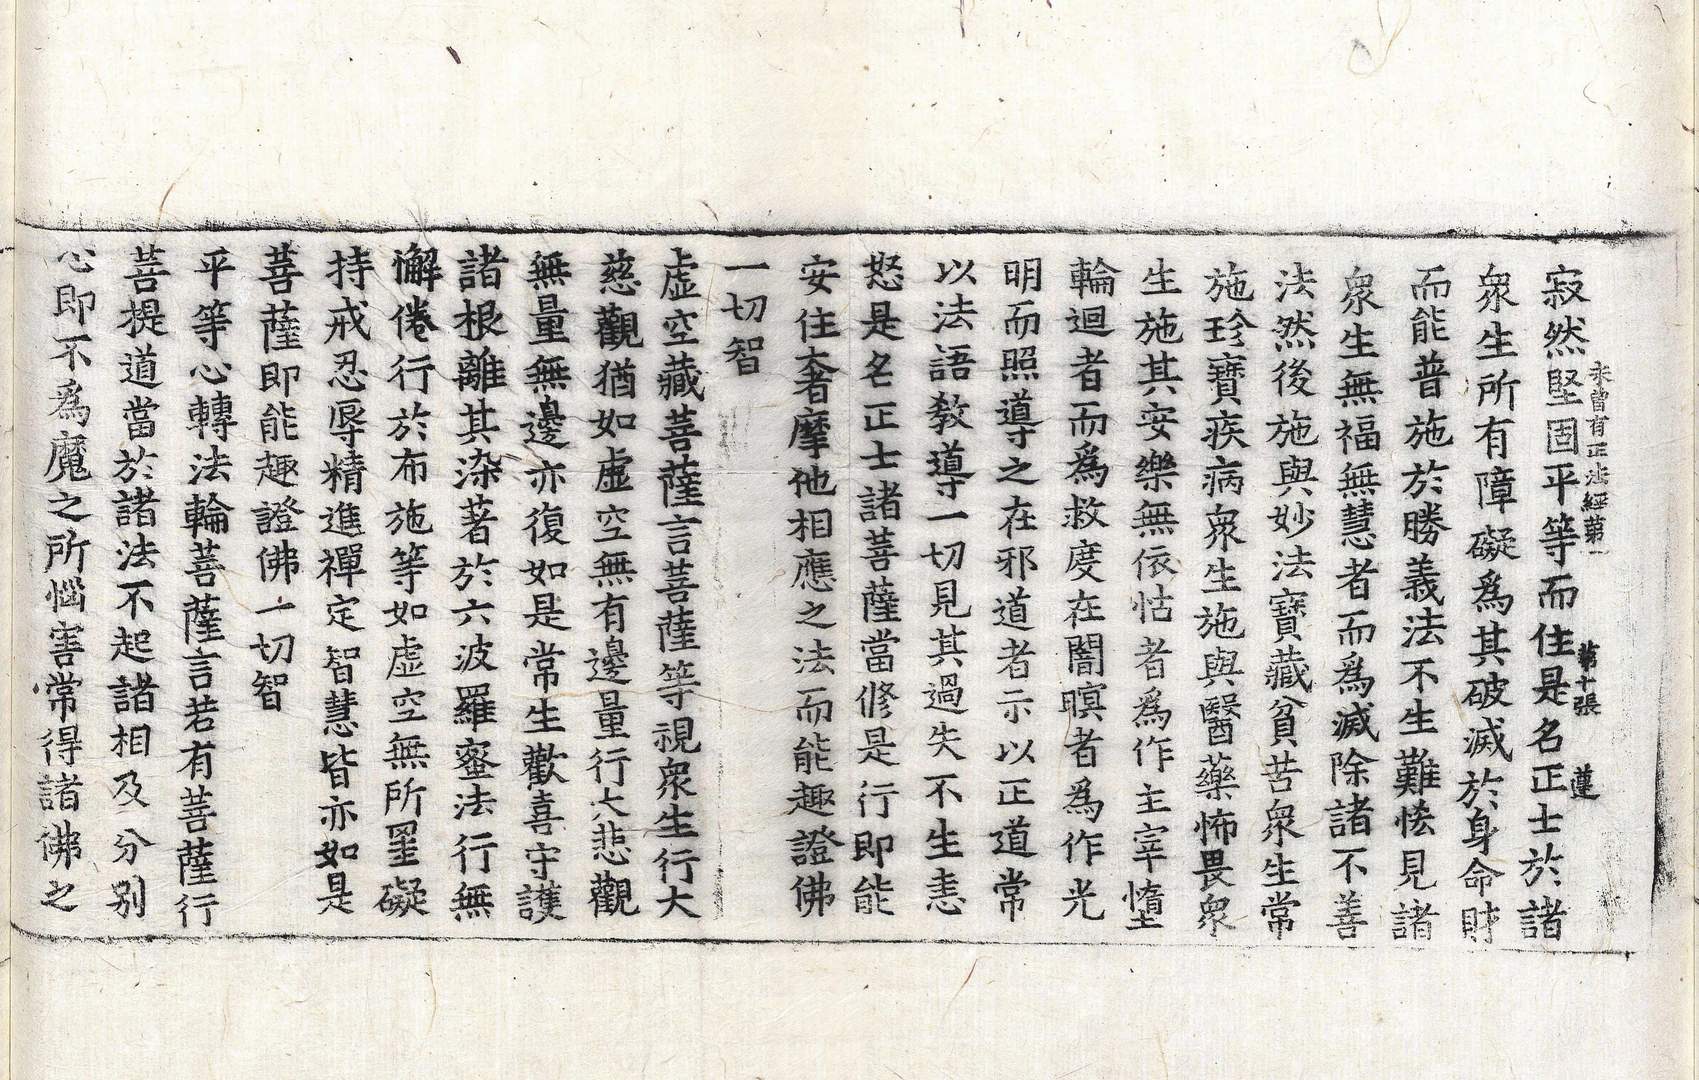 未曾有正法經第一 第十張 蓮
寂然堅固平等而住是名正士於諸
衆生所有障礙爲其破滅於身命財
而能普施於勝義法不生難恡見諸
衆生無福無慧者而爲滅除諸不善
法然後施與妙法寶藏貧苦衆生常
施珍寶疾病衆生施與醫藥怖畏衆
生施其安樂無依怙者爲作主宰墮
輪迴者而爲救度在闇暝者爲作光
明而照導之在邪道者示以正道常
以法語教導一切見其過失不生恚
怒是名正士諸菩薩當修是行即能
安住奢摩他相應之法而能趣證佛
一切智
虛空藏菩薩言菩薩等視衆生行大
慈觀猶如虛空無有邊量行大悲觀
無量無邊亦復如是常生歡喜守護
諸根離其染著於六波羅蜜法行無
懈倦行於布施等如虛空無所罣礙
持戒忍辱精進禪定智慧皆亦如是
菩薩即能趣證佛一切智
平等心轉法輪菩薩言若有菩薩行
菩提道當於諸法不起諸相及分別
心即不爲魔之所惱害常得諸佛之